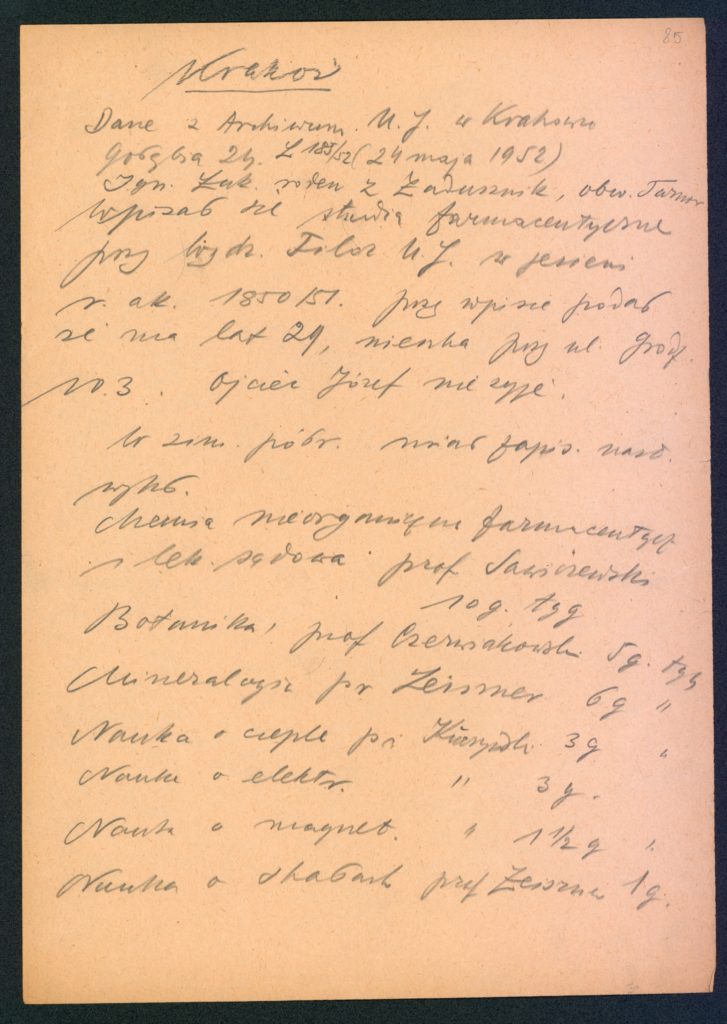 85
Kraków
Dane z Archiwum. U.J. w Krakowie
Gołębia 24. L 185/52 (24 maja 1952)
Ign. Łuk. rodem z Zadusznik, obw. Tarnow
wpisał się studia farmaceutyczne
przy Wydz. Filoz U.J. w jesieni
r. ak. 1850/51. przy wpisie podał
że ma lat 29, mieszka przy ul. Grodz.
no. 3. Ojciec Józef nie żyje.
W zim. półr. miał zapis. nast.
wykł.
Chemia nieorganiczna farmaceutycz
i lek. sądowa prof Sawiczewski
10 g. tyg
Botanika, prof Czerwiakowski 5 g. tyg
Mineralogia pr Zeiszner 6 g "
Nauka o cieple pr 3 g "
Nauka o elektr. " 3 g.
Nauka o magnet. " 1 1/2 g "
Nauka o skałach prof Zeiszner 1 g.